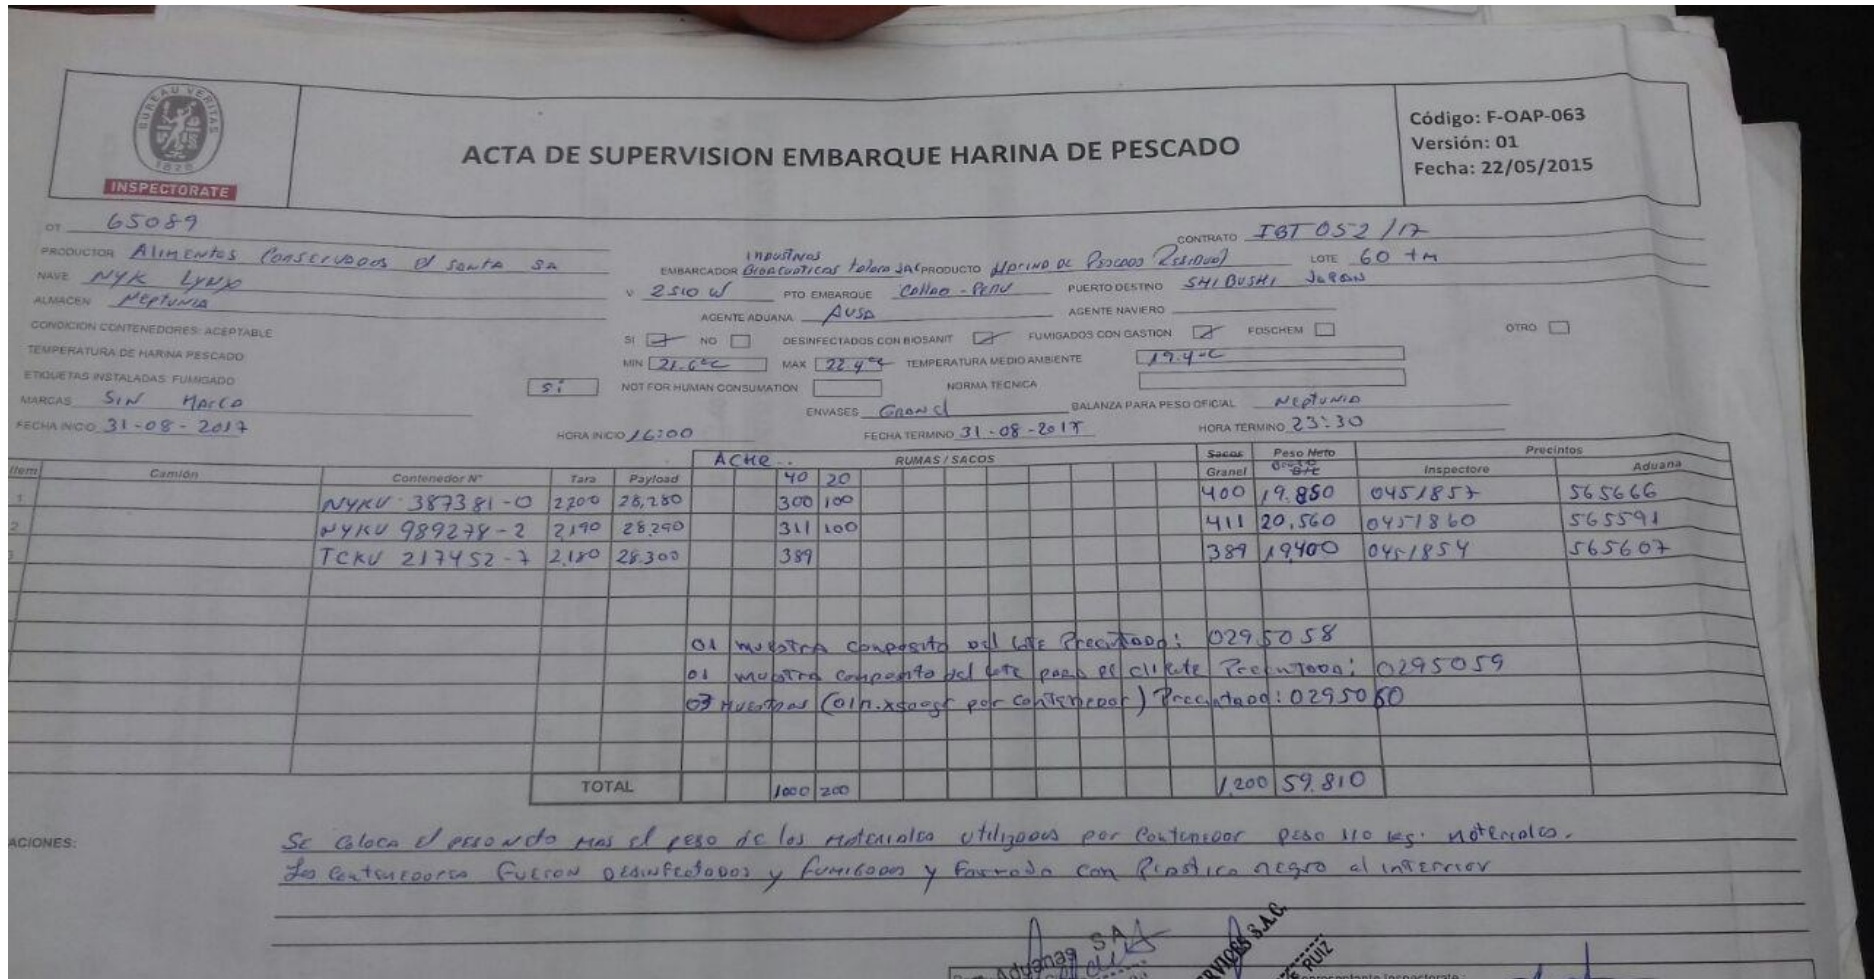 BUREAU VERITAS
1828
INSPECTORATE
ACTA DE SUPERVISION EMBARQUE HARINA DE PESCADO
Código: F-OAP-063
Versión: 01
Fecha: 22/05/2015
OT 65089
CONTRATO IBT 052/17
PRODUCTOR Alimentos Conservados el Santa SA
EMBARCADOR Industrias Bioacuaticas Talara SAC PRODUCTO Harina de Pescado Residual LOTE 60 tm
NAVE NYK Lynx V 2510 W PTO EMBARQUE Callao - Perú PUERTO DESTINO SHIBUSHI Japan
ALMACEN Neptunia AGENTE ADUANA AUSA AGENTE NAVIERO
CONDICION CONTENEDORES: ACEPTABLE SI NO DESINFECTADOS CON BIOSANIT FUMIGADOS CON GASTION FOSCHEM OTRO
TEMPERATURA DE HARINA PESCADO MIN 21.6°C MAX 22.4°C TEMPERATURA MEDIO AMBIENTE 19.4°C
ETIQUETAS INSTALADAS: FUMIGADO Si NOT FOR HUMAN CONSUMATION NORMA TECNICA
MARCAS SIN Marca ENVASES Granel BALANZA PARA PESO OFICIAL Neptunia
FECHA INICIO 31-08-2017 HORA INICIO 16:00 FECHA TERMINO 31-08-2017 HORA TERMINO 23:30
Item Camión Contenedor N° Tara Payload ACHR.. RUMAS / SACOS 40 20 Sacos Granel Peso Neto Precintos Inspectore Aduana
1 NYKU 387381-0 2200 28,280 300 100 400 19.850 0451857 565666
2 NYKU 989278-2 2,190 28.290 311 100 411 20,560 0451860 565591
3 TCKU 217452-7 2,180 28.300 389 389 19,400 0451854 565607
01 muestra composito del lote Precintada: 0295058
01 muestra composito del lote para el cliente Precintada: 0295059
03 Muestras por contenedor) Precintado: 0295060
TOTAL 1000 200 1,200 59.810
ACIONES: Se coloca el peso neto mas el peso de los materiales utilizados por Contenedor peso 110 kgs. materiales.
Los Contenedores fueron desinfectados y fumigados y forrado con Plastico negro al interior
Aduanas SA
SERVICES S.A.C.
RUIZ
Representante Inspectorate: